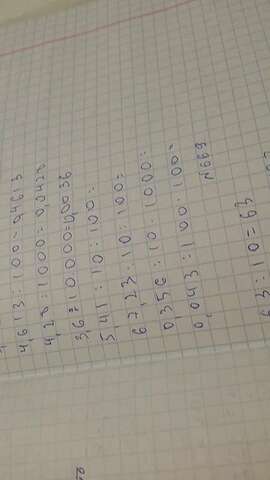 4,613 : 100 = 0,4613
4,28 : 1000 = 0,0428
3,6 : 10000 = 0,0036
5,41 : 10 : 100 =
67,23 : 10 : 100 =
0,356 : 10 : 1000 =
0,043 : 100 · 100 =
N669
63 : 10 = 63